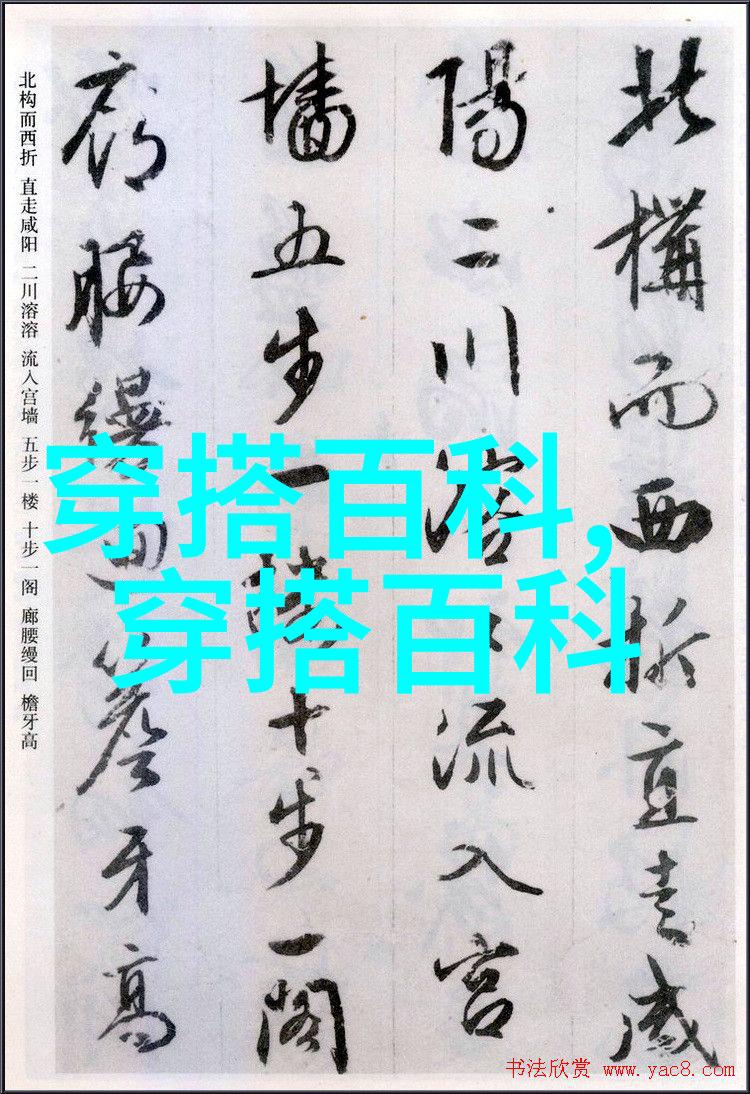 北構而西折直走咸
陽二川溶々流入宮
墻五步一樓十步一閣
廊腰縵迴簷牙高
北构而西折 直走咸阳 二川溶溶 流入宫墙 五步一楼 十步一阁 廊腰缦回 檐牙高
穿搭百科,
穿搭百科
书法欣赏 www.yac8.com